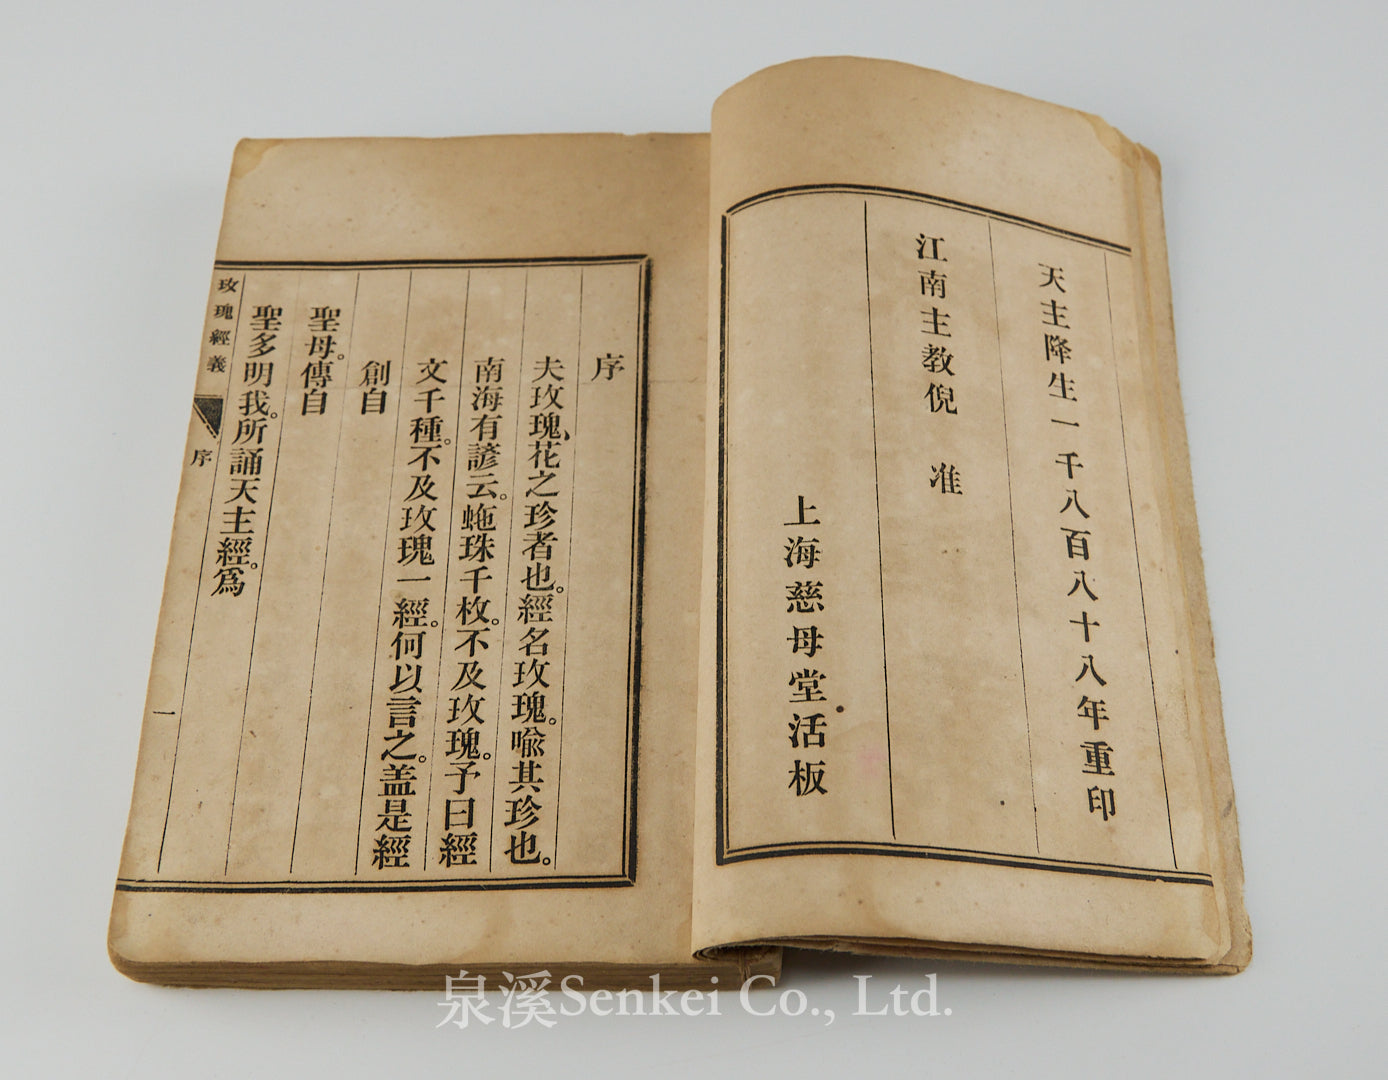 天主降生一千八百八十八年重印
江南主教倪　准
上海慈母堂活板
序
夫玫瑰、花之珍者也。經名玫瑰。喩其珍也。
南海有諺云。虵珠千枚。不及玫瑰。予曰經
文千種。不及玫瑰一經。何以言之。盖是經
創自
聖母。傳自
聖多明我。所誦天主經。爲
玫瑰經義
序
一
泉溪Senkei Co., Ltd.